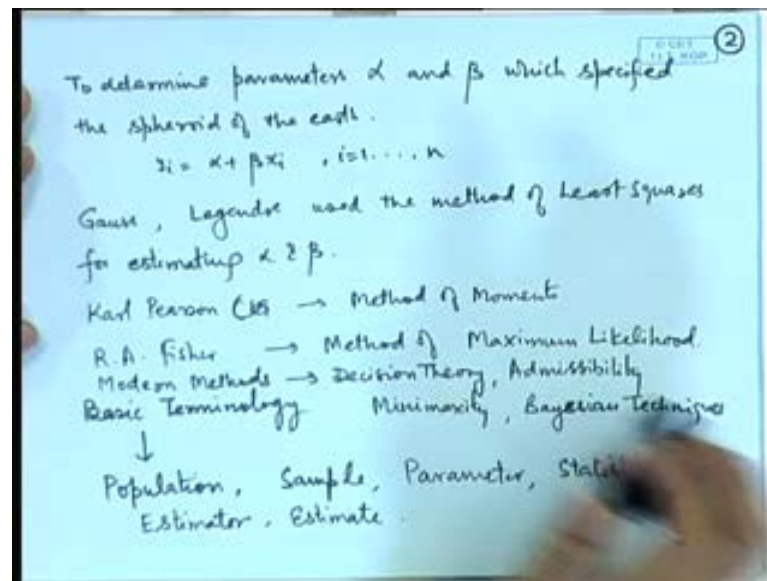 ②
To determine parameters α and β which specified
the spheroid of the earth.
= α + βxi , i=1...., n
Gauss, Legendre used the method of Least Squares
for estimating α & β.
Karl Pearson → Method of Moments
R.A. Fisher → Method of Maximum Likelihood
Modern Methods → Decision Theory, Admissibility
Basic Terminology Minimaxity, Bayesian Techniques
↓
Population, Sample, Parameter,
Estimator, Estimate.